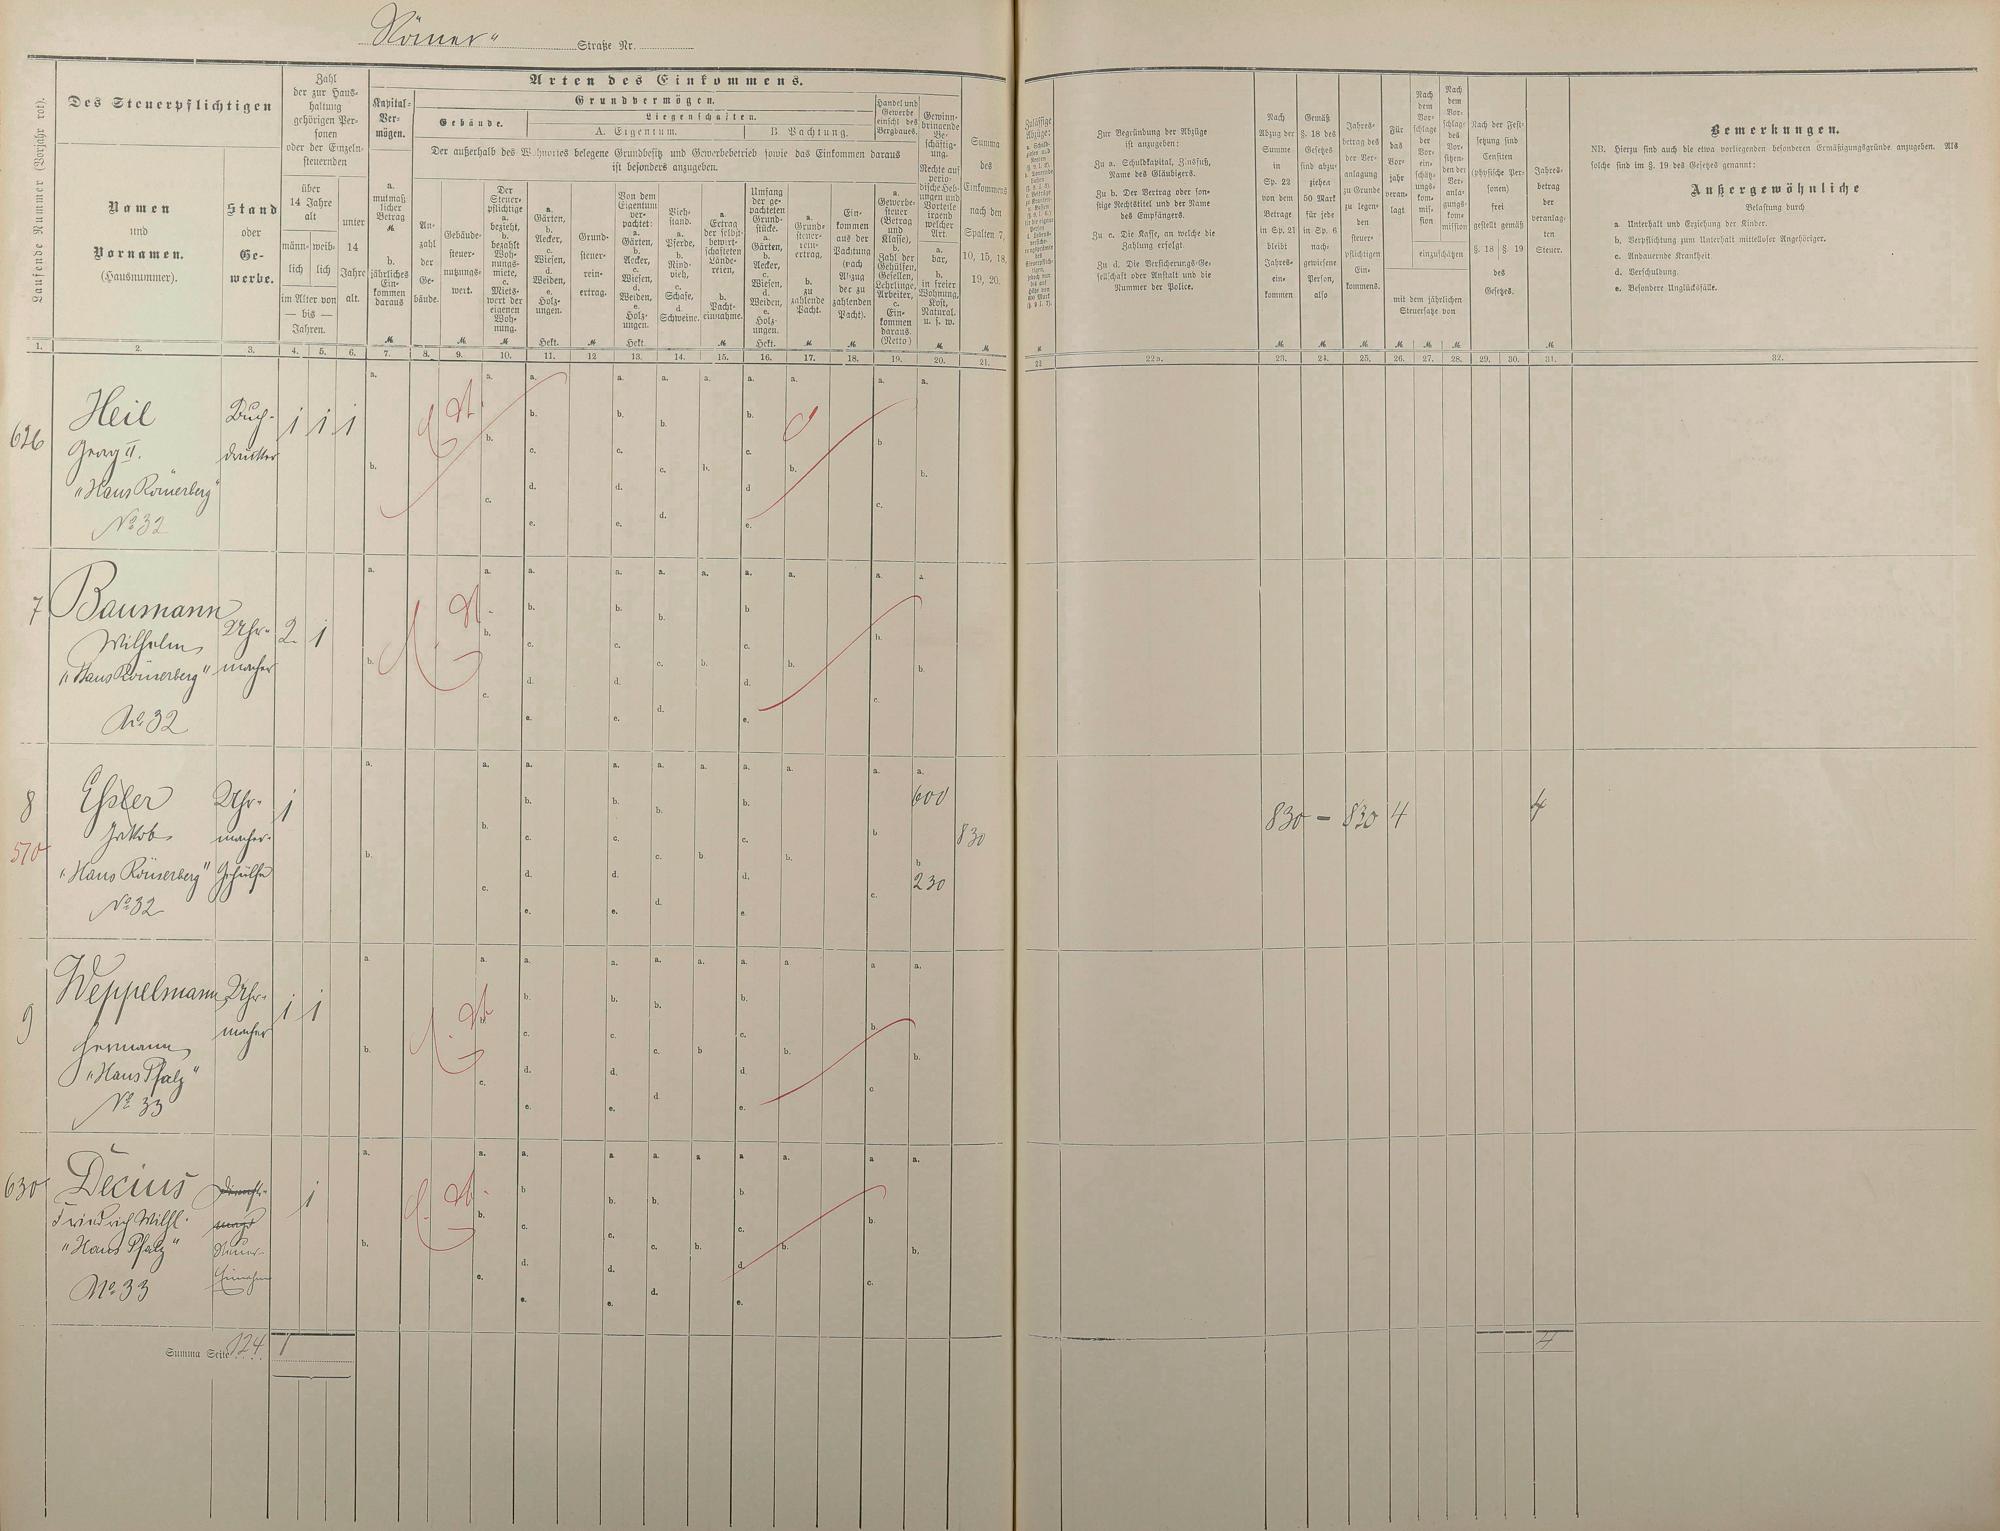 Römer" Straße Nr.
Laufende Nummer (Vorjahr rot).
Des Steuerpflichtigen
Namen
und
Vornamen.
(Hausnummer).
Stand
oder
Ge-
werbe.
Zahl
der zur Haus-
haltung
gehörigen Per-
sonen
oder der Einzeln-
steuernden
über
14 Jahre
alt
männ-
lich
weib-
lich
im Alter von
— bis —
Jahren.
unter
14
Jahre
alt.
Arten des Einkommens.
Kapital-
Ver-
mögen.
a.
mutmaß-
licher
Betrag
b.
jährliches
Ein-
kommen
daraus
Grundvermögen.
Gebäude.
Liegenschaften.
A. Eigentum.
B. Pachtung.
Der außerhalb des Wohnortes belegene Grundbesitz und Gewerbebetrieb sowie das Einkommen daraus
ist besonders anzugeben.
An-
zahl
der
Ge-
bäude.
Gebäude-
steuer-
nutzungs-
wert.
Der
Steuer-
pflichtige
a.
bezieht,
b.
bezahlt
Woh-
nungs-
miete,
c.
Miets-
wert der
eigenen
Woh-
nung.
a.
Gärten,
b.
Aecker,
c.
Wiesen,
d.
Weiden,
e.
Holz-
ungen.
Hekt.
Grund-
steuer-
rein-
ertrag.
Von dem
Eigentum
ver-
pachtet:
a.
Gärten,
b.
Aecker,
c.
Wiesen,
d.
Weiden,
e.
Holz-
ungen.
Hekt.
Vieh-
stand.
a.
Pferde,
b.
Rind-
vieh,
c.
Schafe,
d.
Schweine.
a.
Ertrag
der selbst-
bewirt-
schafteten
Lände-
reien,
b.
Pacht-
einnahme.
Umfang
der ge-
pachteten
Grund-
stücke.
a.
Gärten,
b.
Aecker,
c.
Wiesen,
d.
Weiden,
e.
Holz-
ungen.
Hekt.
a.
Grund-
steuer-
rein-
ertrag,
b.
zu
zahlende
Pacht.
Ein-
kommen
aus der
Pachtung
(nach
Abzug
der zu
zahlenden
Pacht).
Handel und
Gewerbe
einschl. des
Bergbaues.
a.
Gewerbe-
steuer
(Betrag
und
Klasse),
b.
Zahl der
Gehülfen,
Gesellen,
Lehrlinge,
Arbeiter,
c.
Ein-
kommen
daraus.
(Netto)
Gewinn-
bringende
Be-
schäftig-
ung.
Rechte auf
perio-
dische Heb-
ungen und
Vorteile
irgend
welcher
Art.
a.
bar,
b.
in freier
Wohnung,
Kost,
Natural.
u. s. w.
Summa
des
Einkommens
nach den
Spalten 7,
10, 15, 18,
19, 20.
Zulässige
Abzüge:
Zur Begründung der Abzüge
ist anzugeben:
Zu a. Schulkapital, Zinsfuß,
Name des Gläubigers.
Zu b. Der Vertrag oder son-
stige Rechtstitel und der Name
des Empfängers.
Zu c. Die Kasse, an welche die
Zahlung erfolgt.
Zu d. Die Versicherungs-Ge-
sellschaft oder Anstalt und die
Nummer der Police.
Nach
Abzug der
Summe
in
Sp. 22
von dem
Betrage
in Sp. 21
bleibt
Jahres-
ein-
kommen
Gemäß
§. 18 des
Gesetzes
sind abzu-
ziehen
50 Mark
für jede
in Sp. 6
nach-
gewiesene
Person,
also
Jahres-
betrag des
der Ver-
anlagung
zu Grunde
zu legen-
den
steuer-
pflichtigen
Ein-
kommens.
Für
das
Vor-
jahr
veran-
lagt
Nach
dem
Vor-
schlage
der
Vor-
ein-
schätz-
ungs-
kom-
mis-
sion
Nach
dem
Vor-
schlage
des
Vor-
sitzen-
den der
Ver-
anla-
gungs-
kom-
mission
einzuschätzen
mit dem jährlichen
Steuersatze von
Nach der Fest-
setzung sind
Censiten
(physische Per-
sonen)
frei
gestellt gemäß
§. 18 §. 19
des
Gesetzes.
Jahres-
betrag
der
veranlag-
ten
Steuer.
Bemerkungen.
NB. Hierzu sind auch die etwa vorliegenden besonderen Ermäßigungsgründe anzugeben. Als
solche sind im §. 19 des Gesetzes genannt:
Außergewöhnliche
Belastung durch
a. Unterhalt und Erziehung der Kinder.
b. Verpflichtung zum Unterhalt mittelloser Angehöriger.
c. Andauernde Krankheit.
d. Verschuldung.
e. Besondere Unglücksfälle.
1. 2. 3. 4. 5. 6. 7. 8. 9. 10. 11. 12 13. 14. 15. 16. 17. 18. 19. 20. 21. 22 22a. 23. 24. 25. 26. 27. 28. 29. 30. 31. 32.
626 Heil Buch- 1 1 1
Georg II. drucker
"Haus Römerberg"
No 32
7 Baumann Uhr- 2 1
Wilhelm
"Haus Römerberg" macher
No 32
8 Uhr- 1 600
Jakob macher- 830 830 – 830 4 4
570
"Haus Römerberg" Gehülfe 230
No 32
9 Weppelmann Uhr- 1 1
macher
Hermann
"Haus Pfalz"
No 33
630 Decius 1
Friedrich Wilhl.
"Haus Pfalz" Steuer-
Einnehm
No 33
Summa Seite 124 1 4